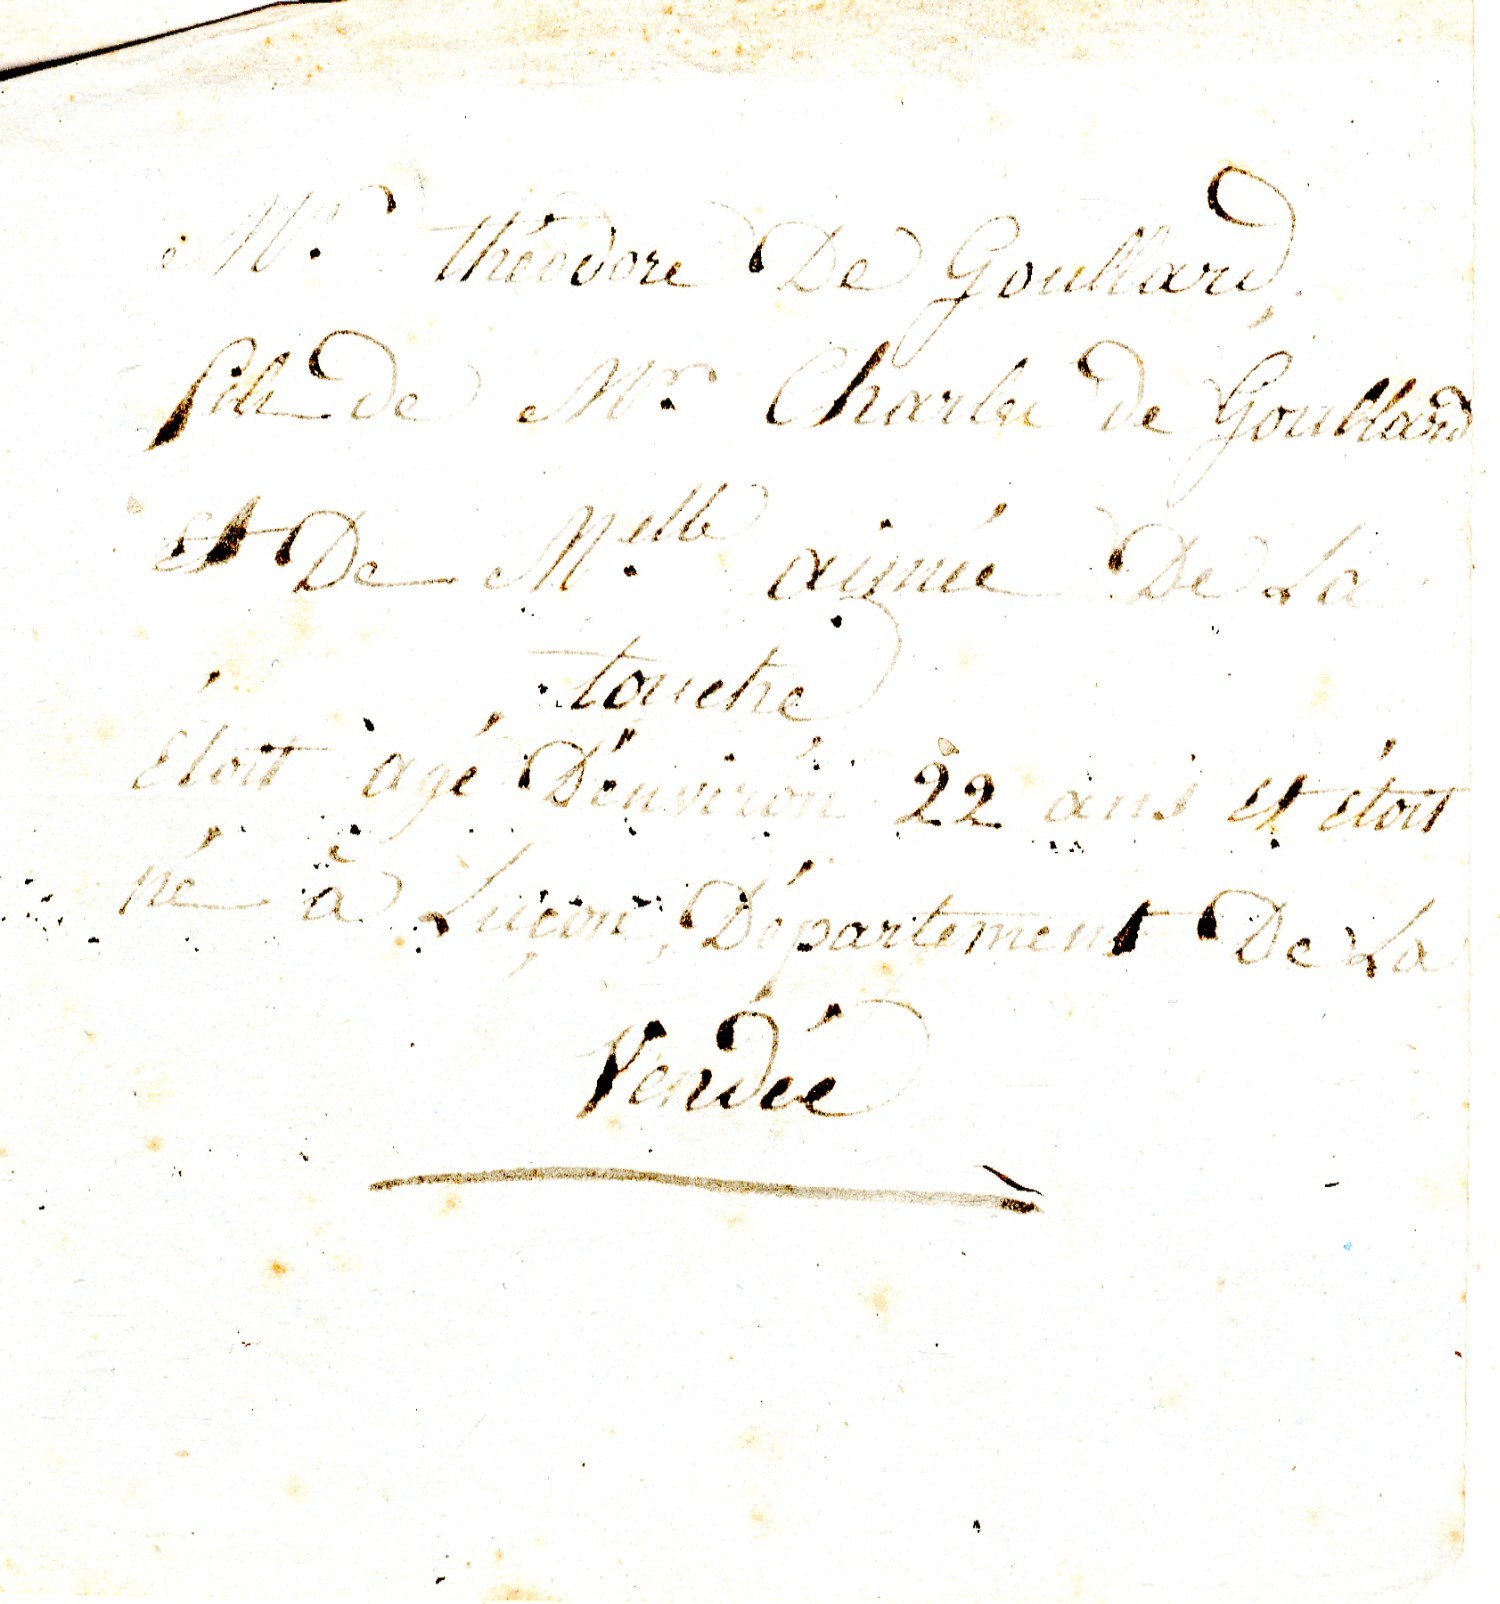 Mr. théodore De Goullard,
fils de Mr. Charles de Goullard
et De Melle aimée De La
touche
étoit agé D'environ 22 ans et étoit
né à Luçon, Département De La
Vendée